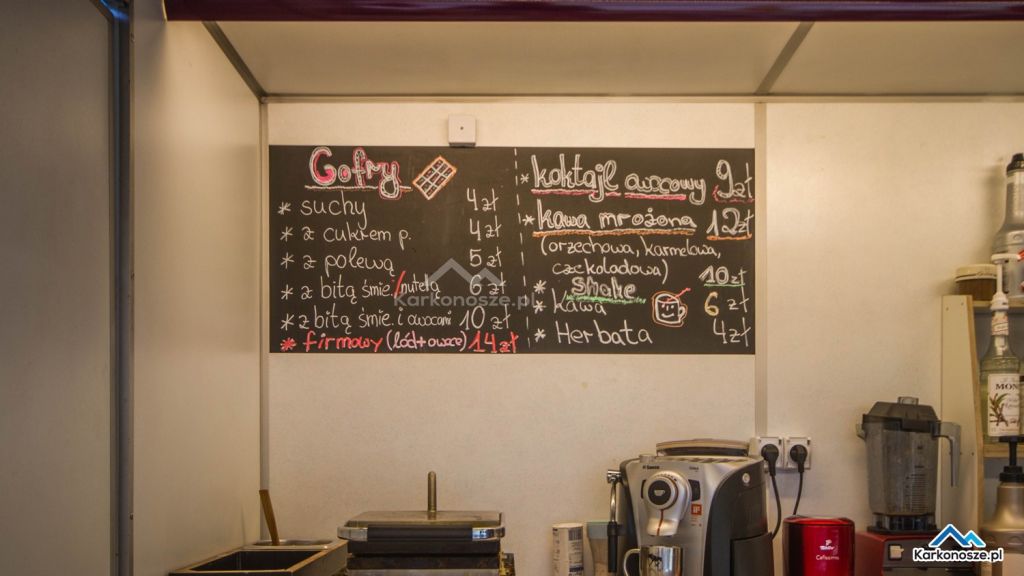 Gofry
* suchy 4 zł
* z cukrem p. 4 zł
* z polewą 5 zł
* z bitą śmie./nutellą 6 zł
* z bitą śmie. i owocami 10 zł
* firmowy (lód + owoce) 14 zł
* koktajl owocowy 9 zł
* kawa mrożona 12 zł
(orzechowa, karmelowa,
czekoladowa)
* Shake 10 zł
* kawa 6 zł
* Herbata 4 zł
Karkonosze.pl
Saeco
MON
Tchibo
Cafissimo
Karkonosze.pl